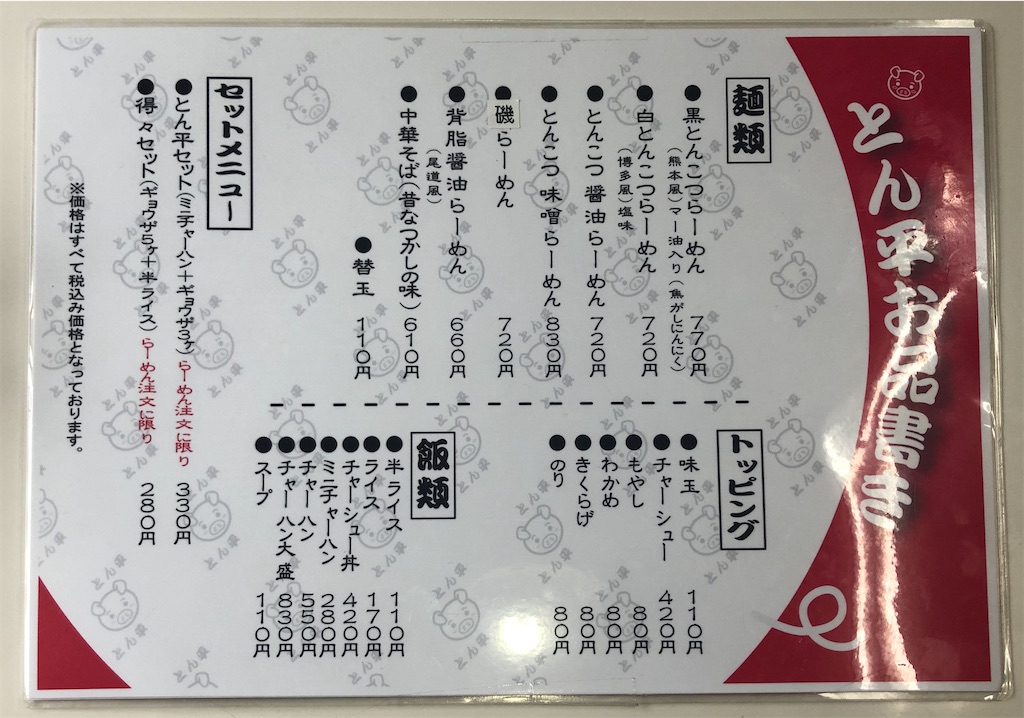 とん平お品書き
麺類
●黒とんこつらーめん 770円
(熊本風)マー油入り(焦がしにんにく)
●白とんこつらーめん 720円
(博多風)塩味
●とんこつ醤油らーめん 720円
●とんこつ味噌らーめん 830円
●磯らーめん 720円
●背脂醤油らーめん 660円
(尾道風)
●中華そば(昔なつかしの味) 610円
●替玉 110円
トッピング
●味玉 110円
●チャーシュー 420円
●もやし 80円
●わかめ 80円
●きくらげ 80円
●のり 80円
飯類
●半ライス 110円
●ライス 170円
●チャーシュー丼 420円
●ミニチャーハン 280円
●チャーハン 550円
●チャーハン大盛 830円
●スープ 110円
セットメニュー
●とん平セット(ミニチャーハン+ギョウザ3ヶ)らーめん注文に限り 330円
●得々セット(ギョウザ5ヶ+半ライス)らーめん注文に限り 280円
※価格はすべて税込み価格となっております。